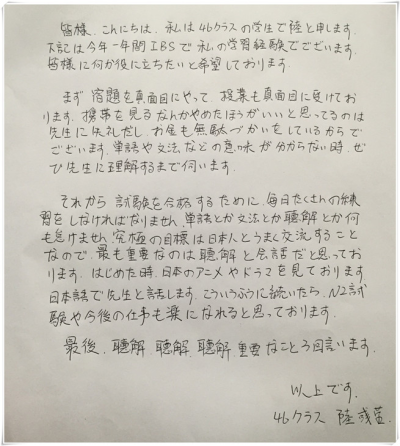 皆様、こんにちは、私は46クラスの学生で陸と申します。
下記は今年一年間IBSで私の学習経験でございます。
皆様に何か役に立ちたいと希望しております。
まず宿題を真面目にやって、授業も真面目に受けてお
ります。携帯を見るなんかやめたほうがいいと思ってるのは
先生に失礼だし、お金も無駄づかいをしているからで
ございます。単語や文法などの意味が分からない時、ぜ
ひ先生に理解するまで伺います。
それから試験を合格するために、毎日たくさんの練
習をしなければなりません、単語とか文法とか聴解とか何
も怠けません。究極の目標は日本人とうまく交流すること
なので、最も重要なのは聴解と会話だと思ってお
ります。はじめた時、日本のアニメやドラマを見ております
日本語で先生と話します。こういうふうに続いたら、N2試
験や今後の仕事も楽になれると思っております。
最後、聴解、聴解、聴解、重要なこと3回言います。
以上です。
46クラス 陸